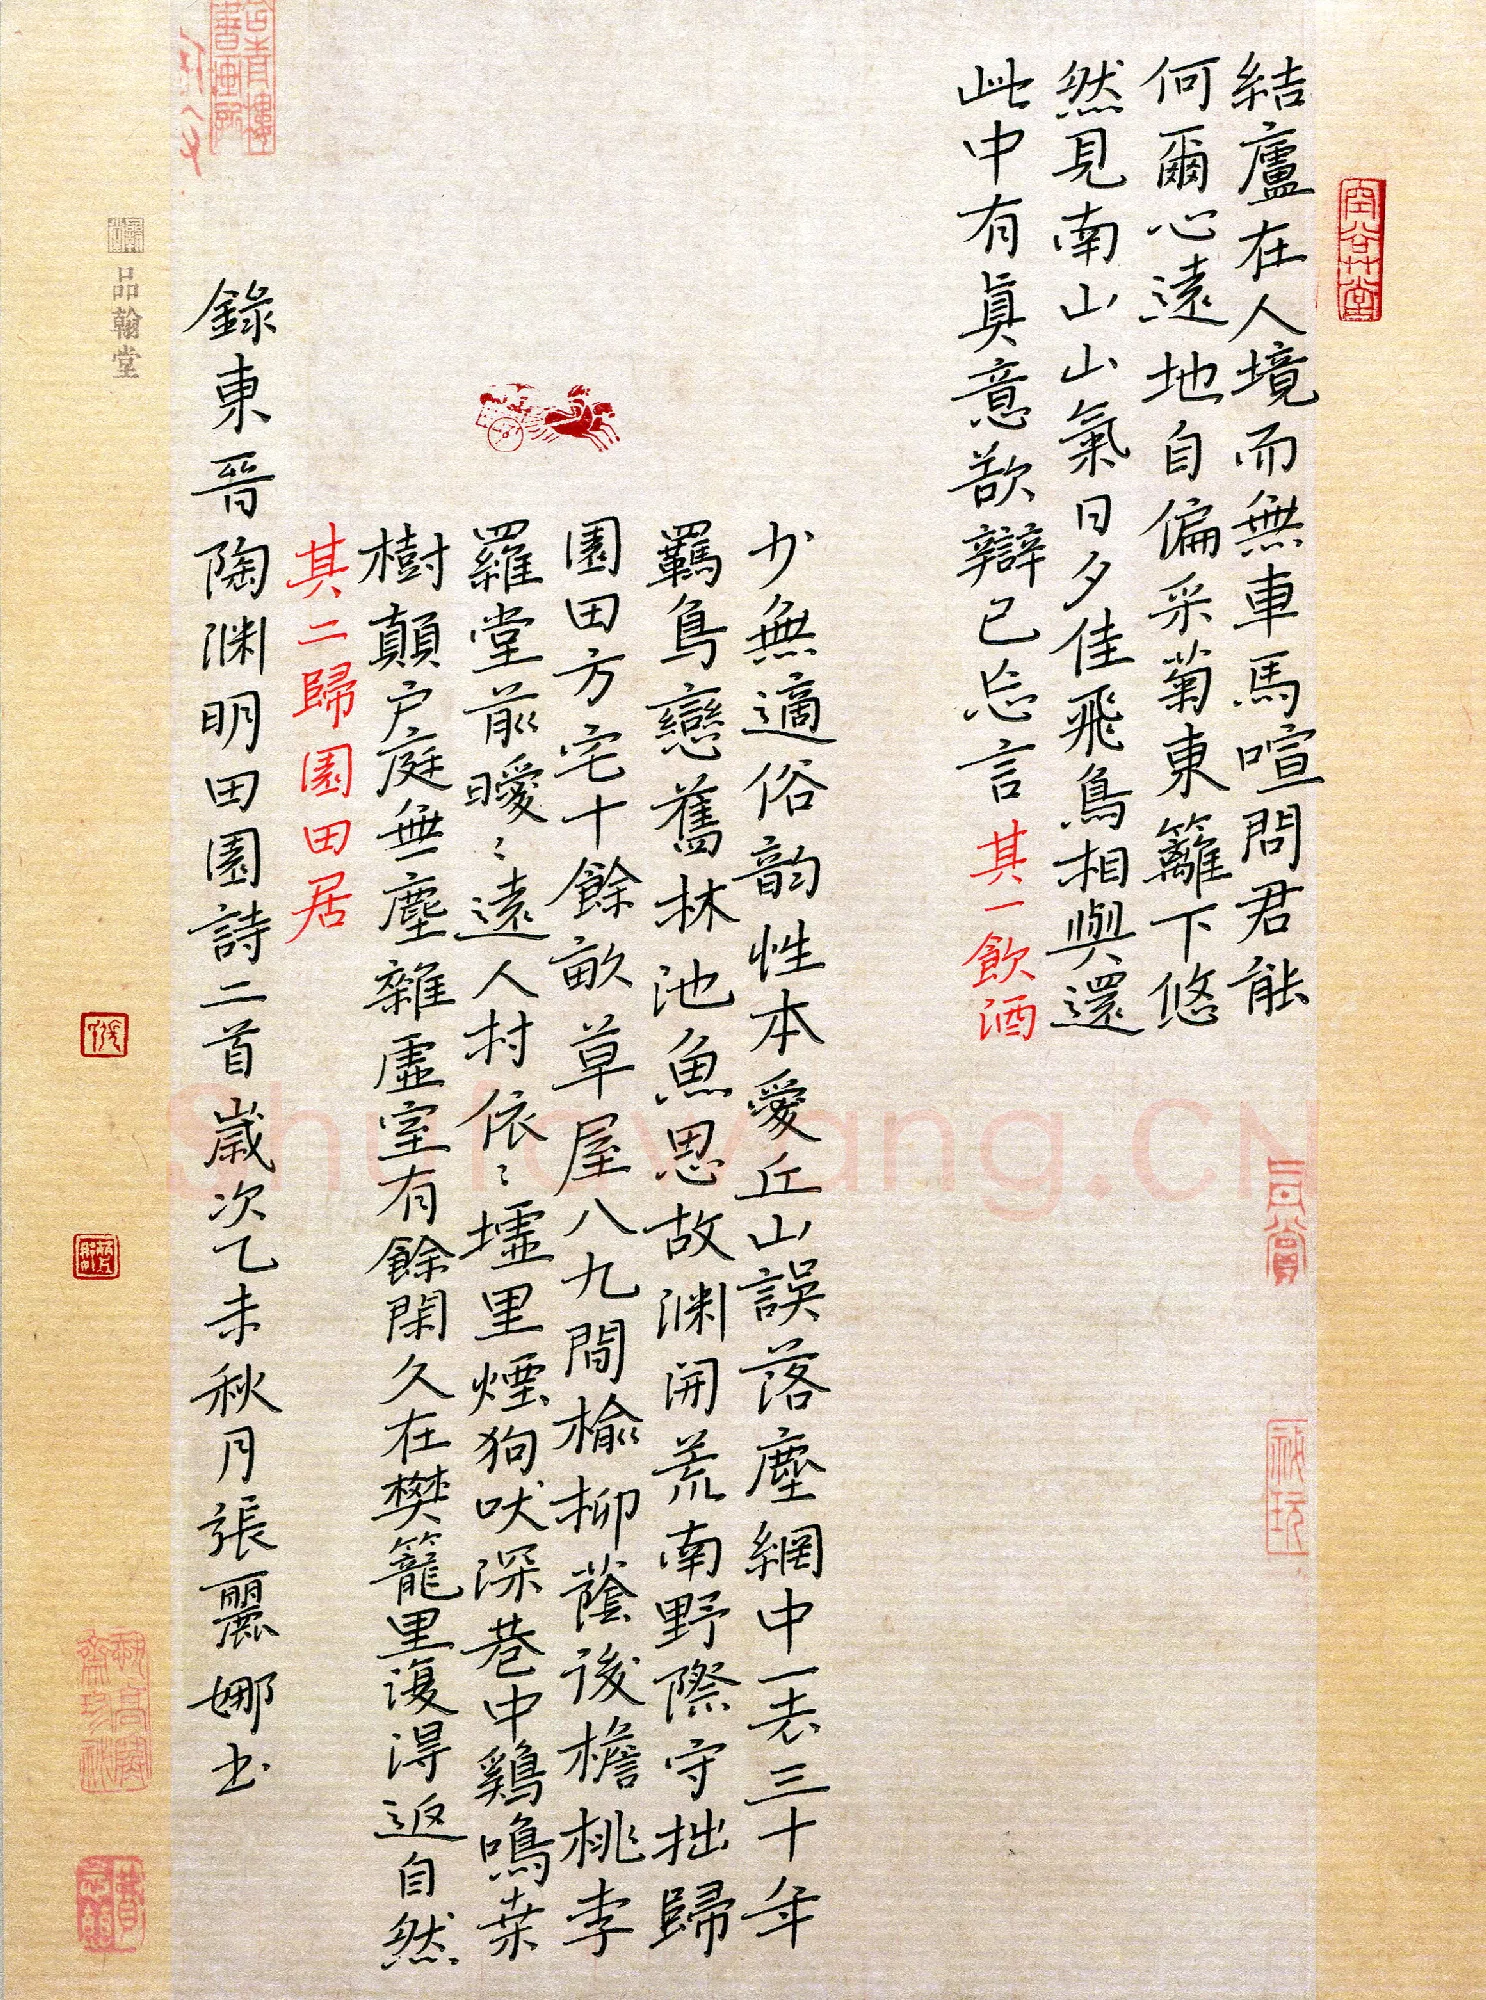 結廬在人境而無車馬喧問君能
何爾心遠地自偏采菊東籬下悠
然見南山山氣日夕佳飛鳥相與還
此中有真意欲辯已忘言其一飲酒
少無適俗韵性本愛丘山誤落塵網中一去三十年
羈鳥戀舊林池魚思故渊開荒南野際守拙歸
園田方宅十餘畝草屋八九間榆柳蔭後檐桃李
羅堂前曖〻遠人村依〻墟里煙狗吠深巷中鷄鳴桑
樹顛户庭無塵雜虛室有餘閑久在樊籠里復得返自然
其二歸園田居
錄東晉陶渊明田園詩二首歲次乙未秋月張麗娜书
品翰堂
空谷堂
Shufawang.CN